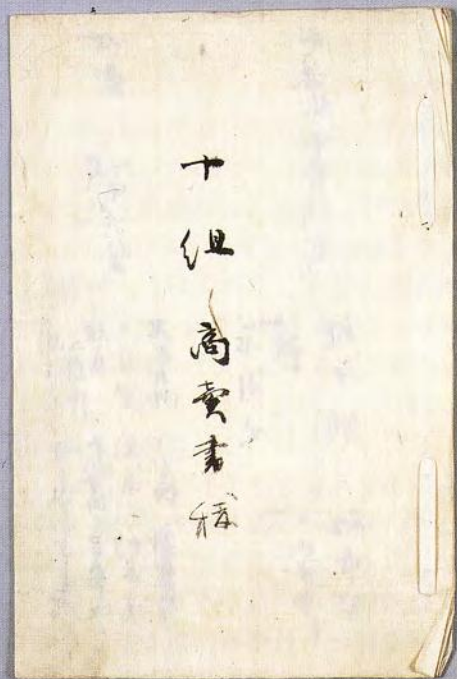 十組商賣書